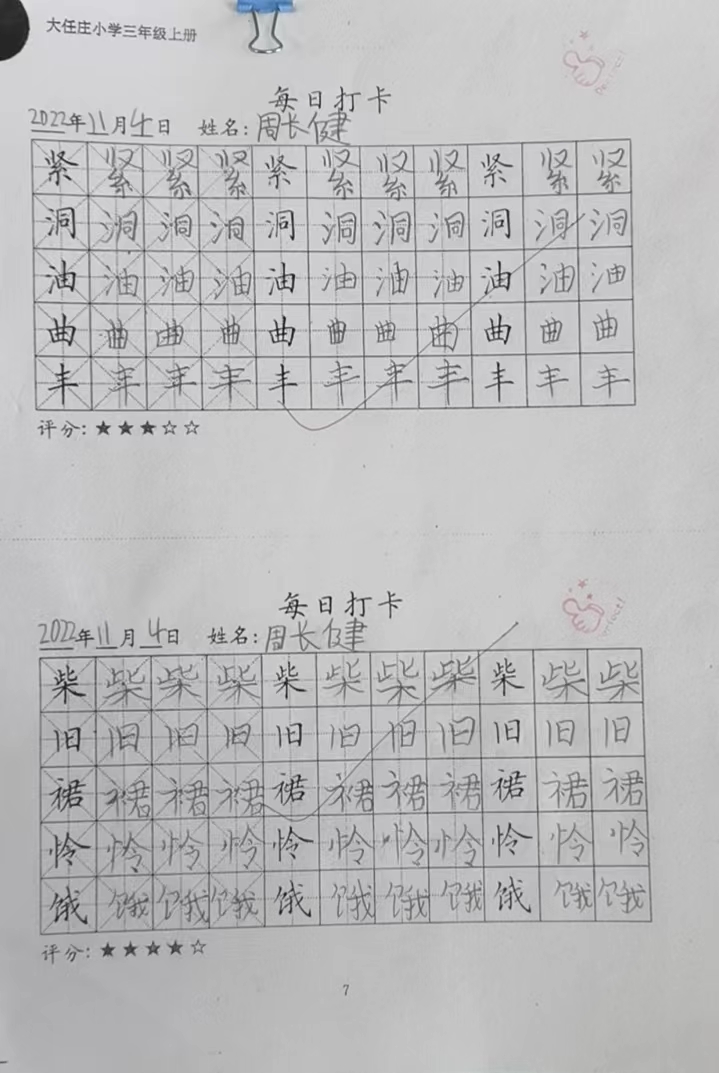 大任庄小学三年级上册
每日打卡
2022年11月4日 姓名:周长健
紧紧紧紧紧紧紧紧紧紧紧
洞洞洞洞洞洞洞洞洞洞洞
油油油油油油油油油油油
曲曲曲曲曲曲曲曲曲曲曲
丰丰丰丰丰丰丰丰丰丰丰
评分:★★★☆☆
Perfect!
每日打卡
2022年11月4日 姓名:周长健
柴柴柴柴柴柴柴柴柴柴柴
旧旧旧旧旧旧旧旧旧旧旧
裙裙裙裙裙裙裙裙裙裙裙
怜怜怜怜怜怜怜怜怜怜怜
饿饿饿饿饿饿饿饿饿饿饿
评分:★★★★☆
Perfect!
7